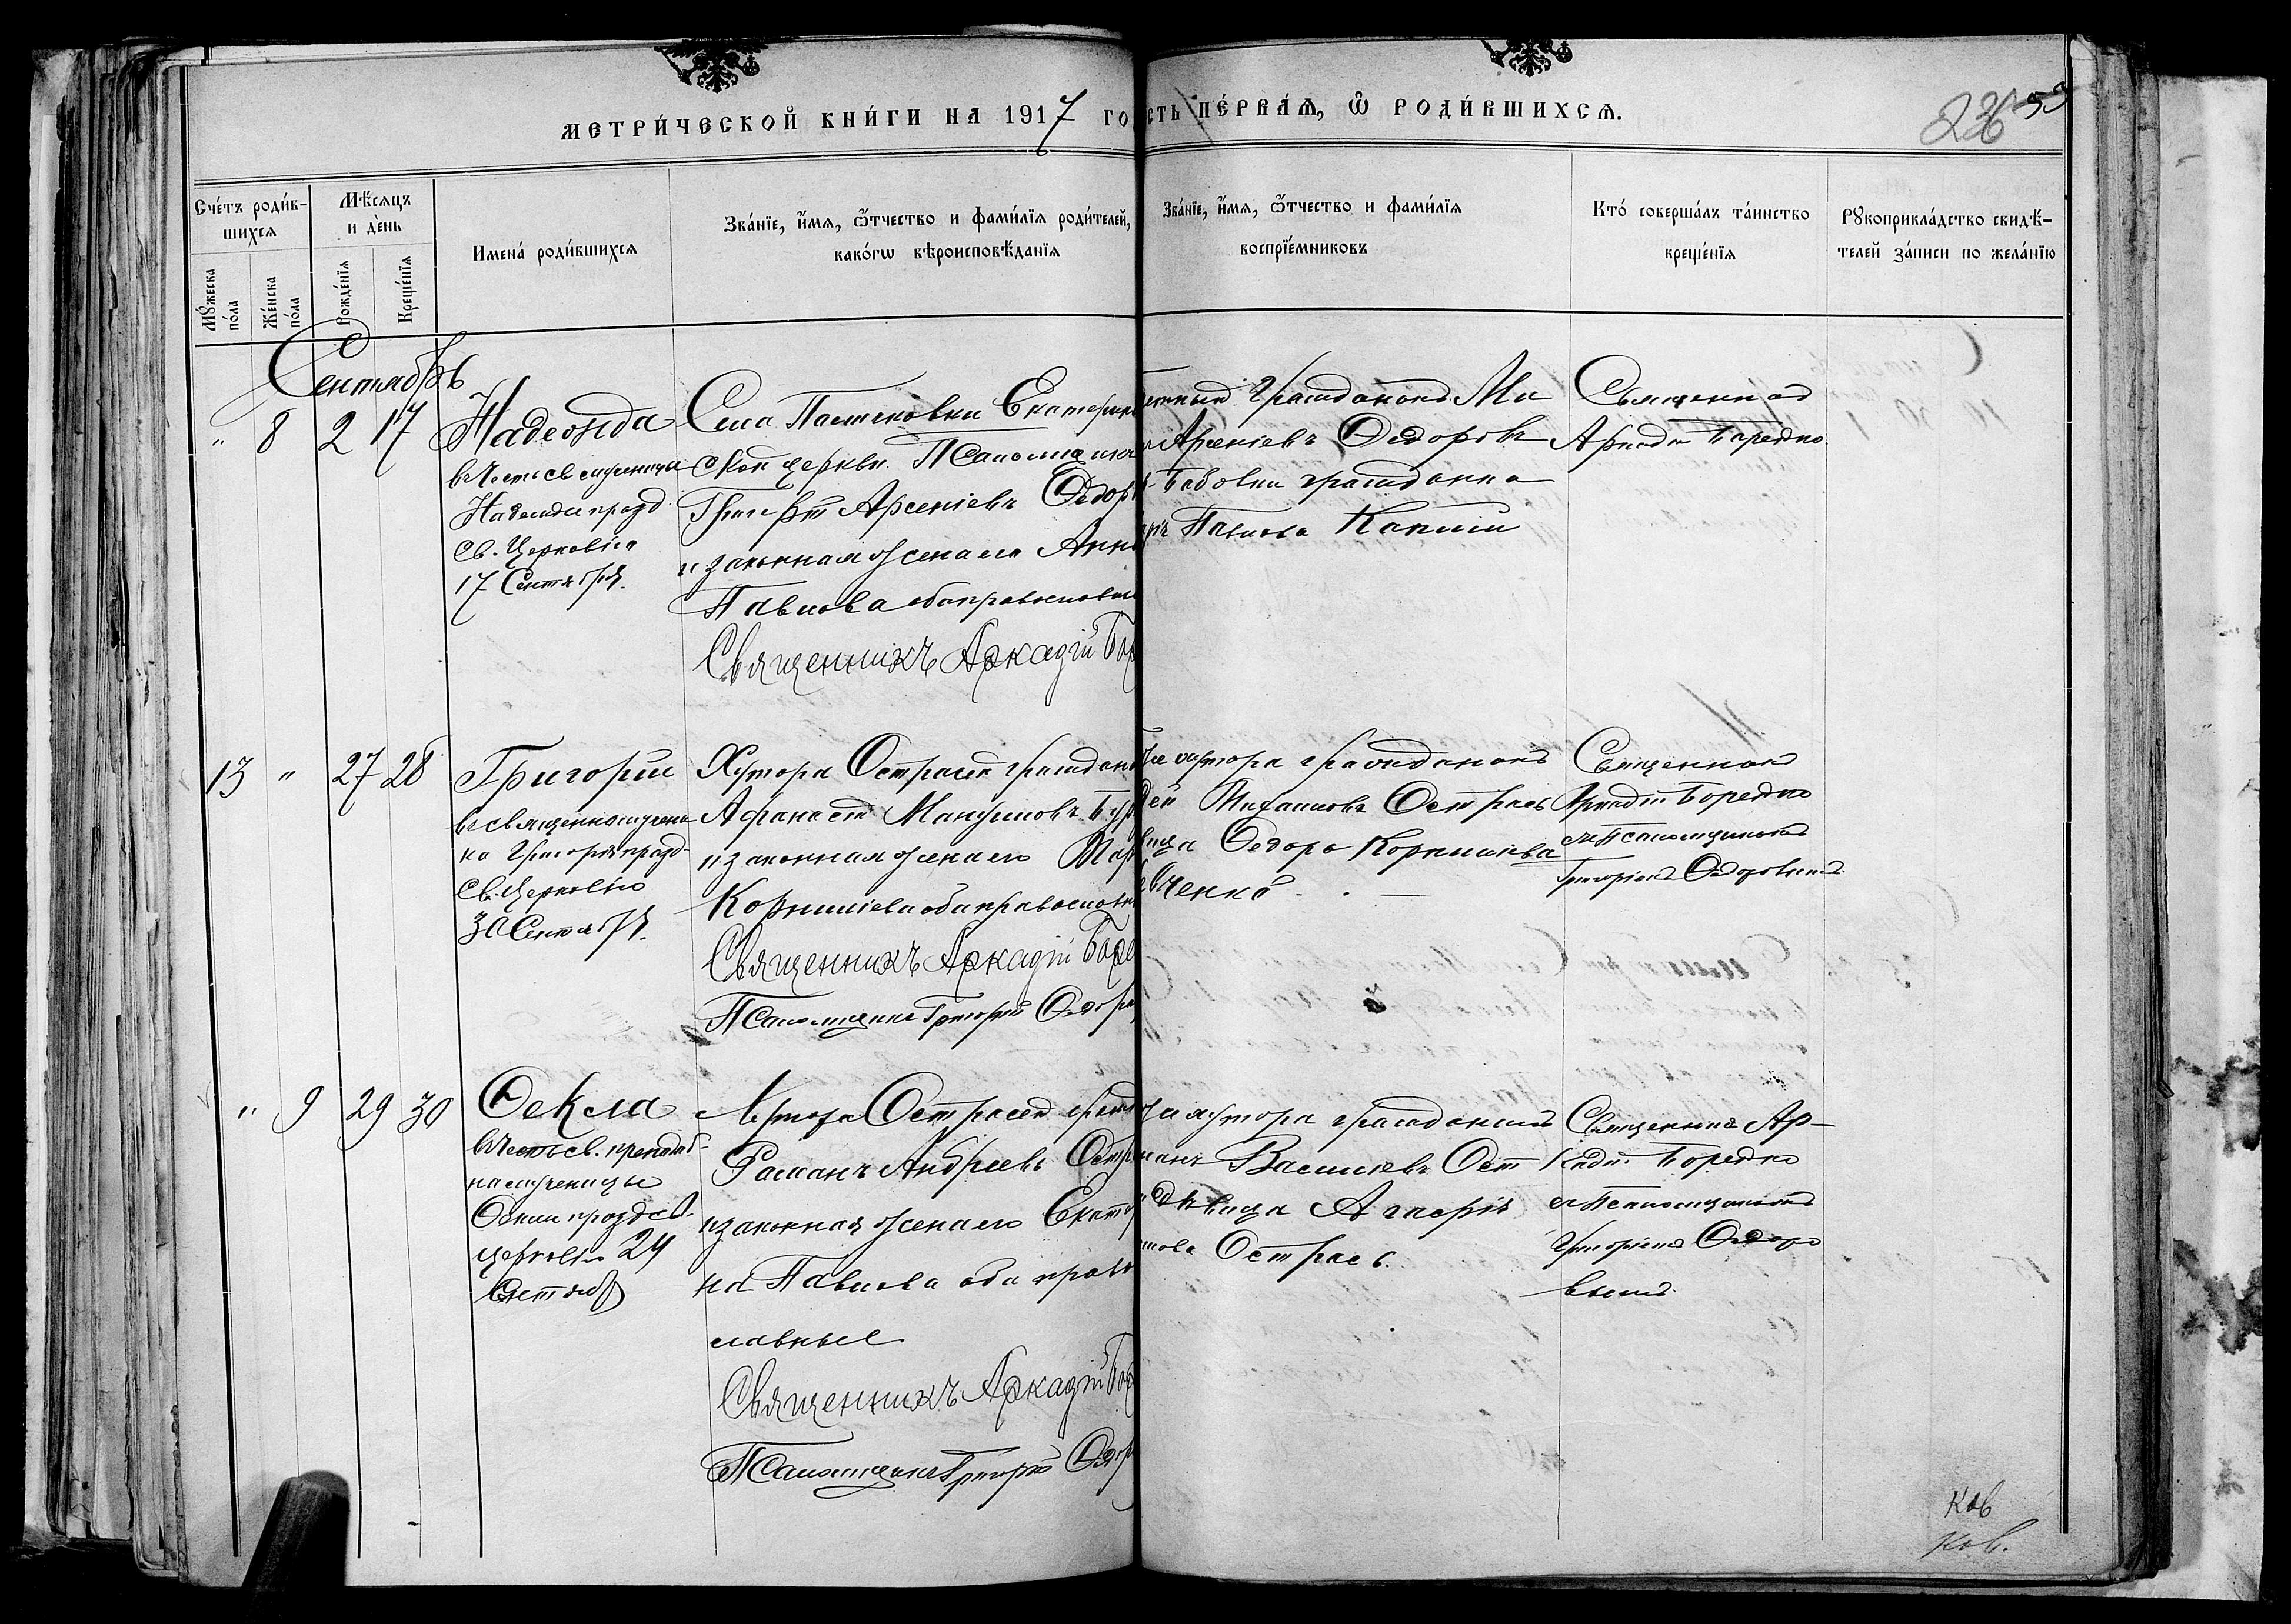 МЕТРИ́ЧЕСКОЙ КНИ́ГИ НА 1917 ГО
СТЬ ПЕ́РВАѦ, Ѽ РОДИ́ВШИХСѦ.
236
Сче́тъ роди́в-
шихсѧ
Мѣ́сѧцъ
и де́нь
Имена́ роди́вшихсѧ
Зва́нїе, и҆́мѧ, ѻ҆́тчество и фами́лїѧ роди́телей,
како́гѡ вѣроисповѣ́данїѧ
Мꙋ́жеска
по́ла
Же́нска
по́ла
Рожде́нїѧ
Креще́нїѧ
Зва́нїе, и҆́мѧ, ѻ҆́тчество и фами́лїѧ
воспрїе́мниковъ
Кто́ соверша́лъ та́инство
креще́нїѧ
Рꙋкоприкла́дство свидѣ́-
телей за́писи по жела́нїю
Сентябрь
" 8 2 17
Надежда
въ честь св. мученицы
Надежды празд.
Св. Церковію
17 Сентября.
Села Пасичковки Екатерин
ской церкви Псаломщикъ
Григорій Арсеніевъ Ѳедор
и законная жена его Анн
Павлова оба православн
Священникъ Аркадій Бор
гражданинъ Ми
Арсеніевъ Ѳедоров
гражданка
Павлова
Священник
Аркадій Боредко
13 " 27 28
Григорій
въ священномучени
ка Григорія празд
Св. Церковію
30 Сентября.
Хутора Остраев граждан
Афанасій Мануиловъ Бур
и законная жена его Мар
Корнилієва оба православн
Священникъ Аркадій Боре
Псаломщикъ Григорій Ѳедоров
хутора гражданинъ
Михаиловъ Острась
вица Ѳедора Корнилиева
вченко
Священникъ
Аркадій Боредко
съ Псаломщикомъ
Григоріемъ Ѳедоровымъ
" 9 29 30
Ѳекла
въ честь св. препод
номученицы
Ѳеклы празд св.
церковію 24
Сентяб
Хутора Остраев гражд
Романъ Андреевъ Остр
и законная жена его Екатер
на Павлова оба право
славные
Священникъ Аркадій Бор
Псаломщикъ Григорій Ѳедор
хутора гражданинъ
Василіевъ Ост
дѣвица
Острась.
Священникъ Ар-
кадій Боредко
съ Псаломщикомъ
Григоріемъ Ѳедоро
вымъ
Ков
Ков.